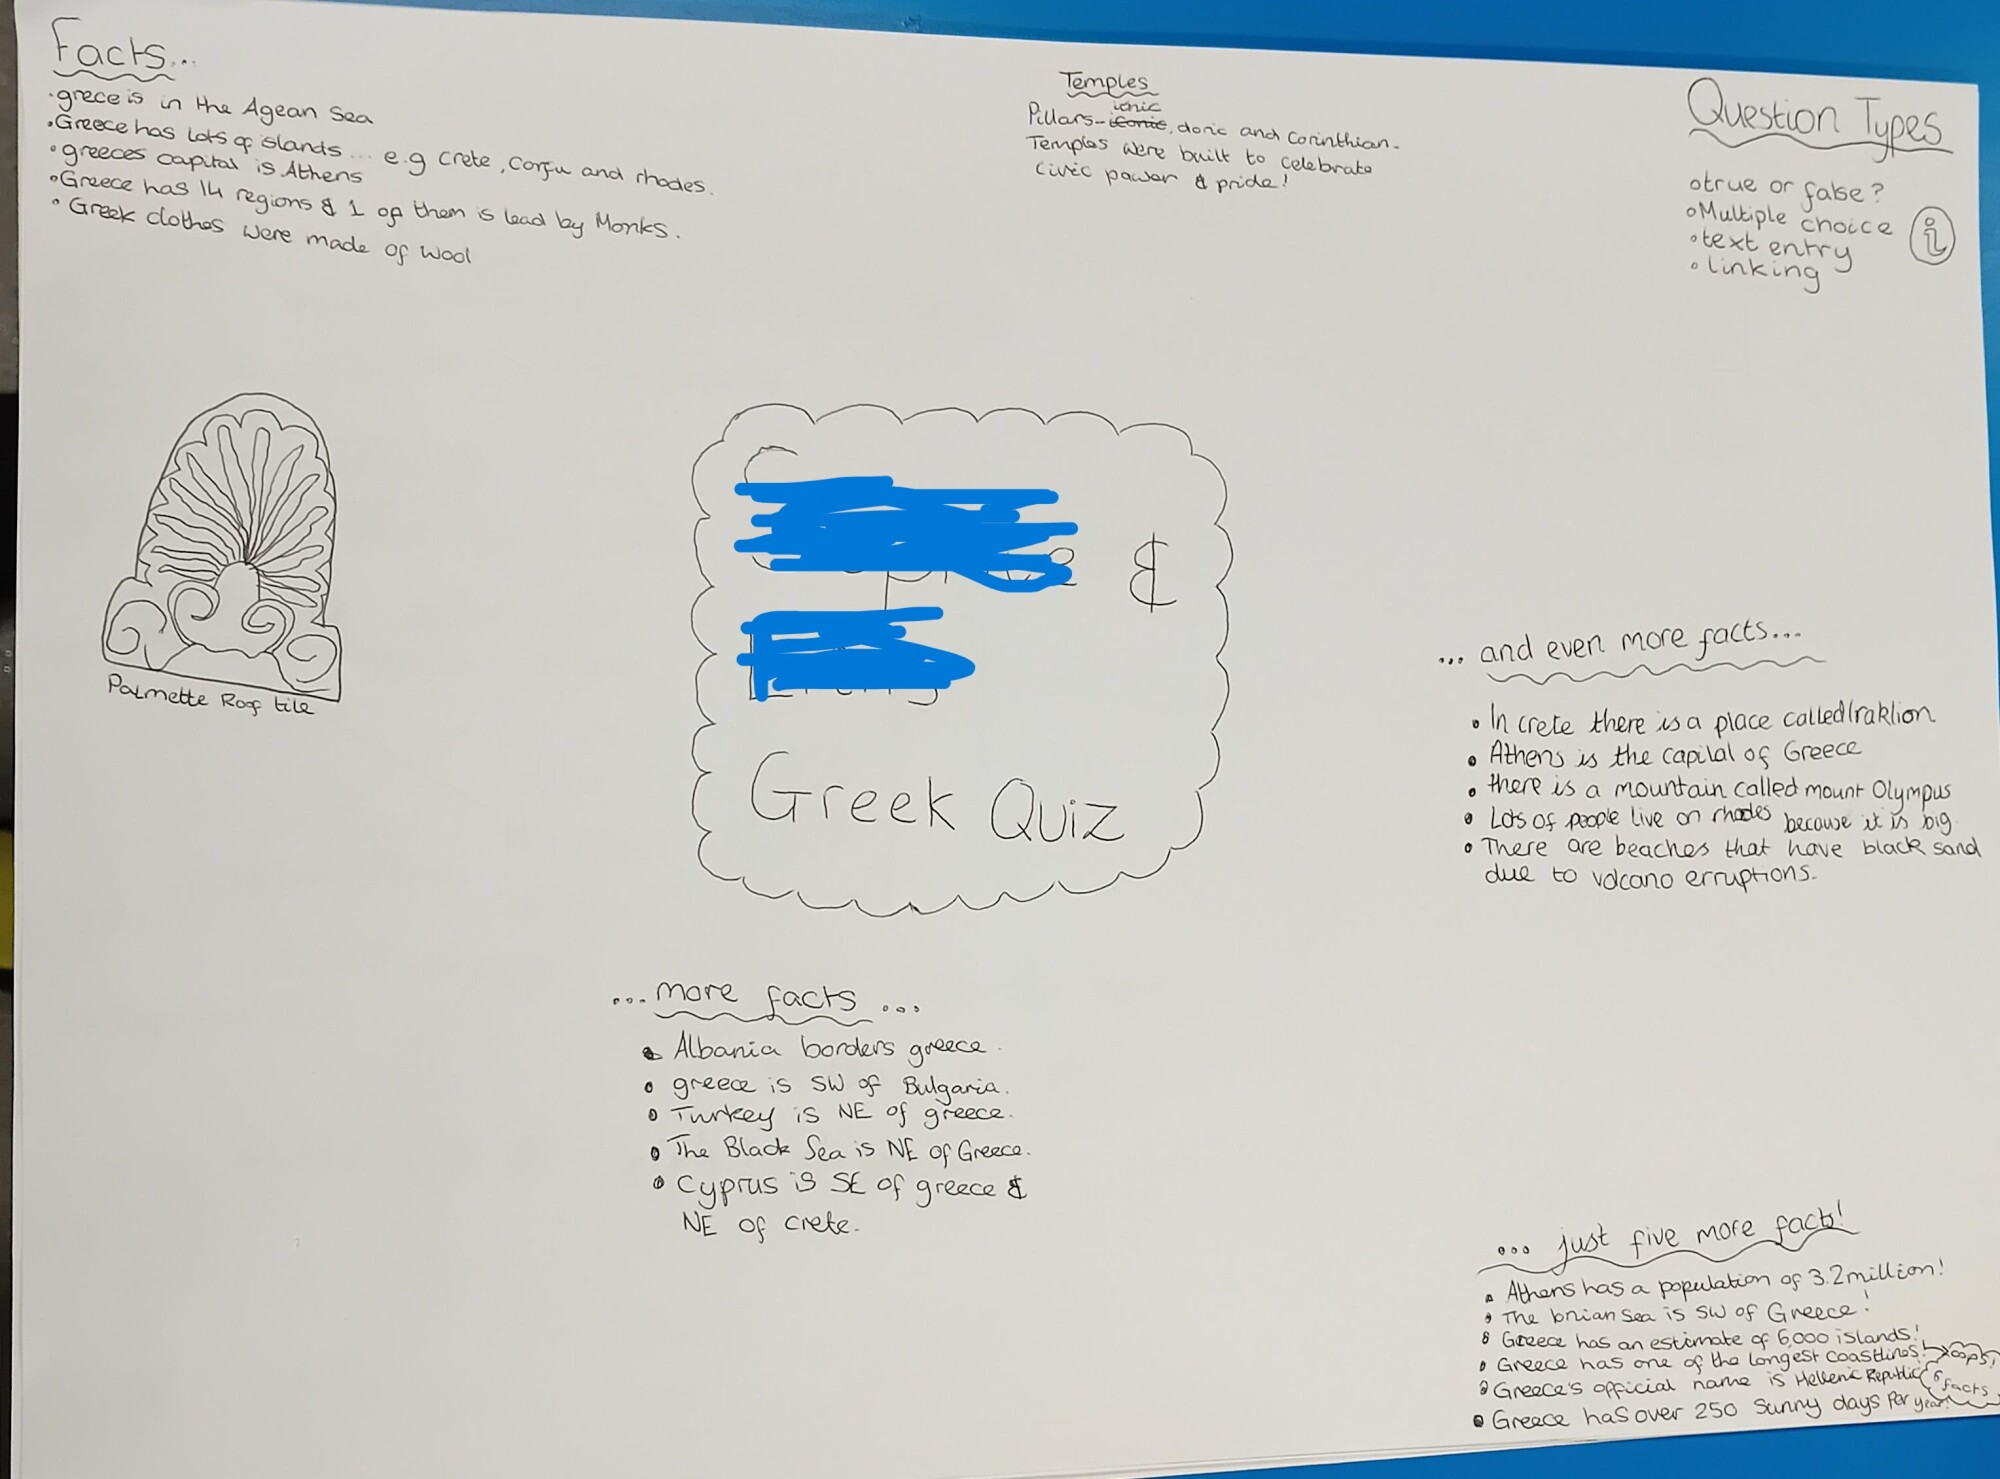 Facts...
· grece is in the Agean Sea
· Greece has lots of islands... e.g crete, Corfu and rhodes.
· greeces capital is Athens
· Greece has 14 regions & 1 of them is lead by Monks.
· Greek clothes were made of wool
Temples
ionic
Pillars - iconic, doric and Corinthian.
Temples were built to celebrate
civic power & pride!
Question Types
· true or false?
· Multiple choice
· text entry
· linking
i
Palmette Roof tile
&
Greek Quiz
... and even more facts...
· In crete there is a place called Iraklion
· Athens is the capital of Greece
· there is a mountain called mount Olympus
· Lots of people live on rhodes because it is big
· There are beaches that have black sand
due to volcano erruptions.
...more facts...
· Albania borders greece.
· greece is SW of Bulgaria.
· Turkey is NE of greece.
· The Black Sea is NE of Greece.
· Cyprus is SE of greece &
NE of crete.
... just five more facts!
· Athens has a population of 3.2 million!
· The Sea is SW of Greece!
· Greece has an estimate of 6,000 islands!
· Greece has one of the longest coastlines! oops,
· Greece's official name is Hellenic Republic 6 facts
· Greece has over 250 Sunny days Per year!